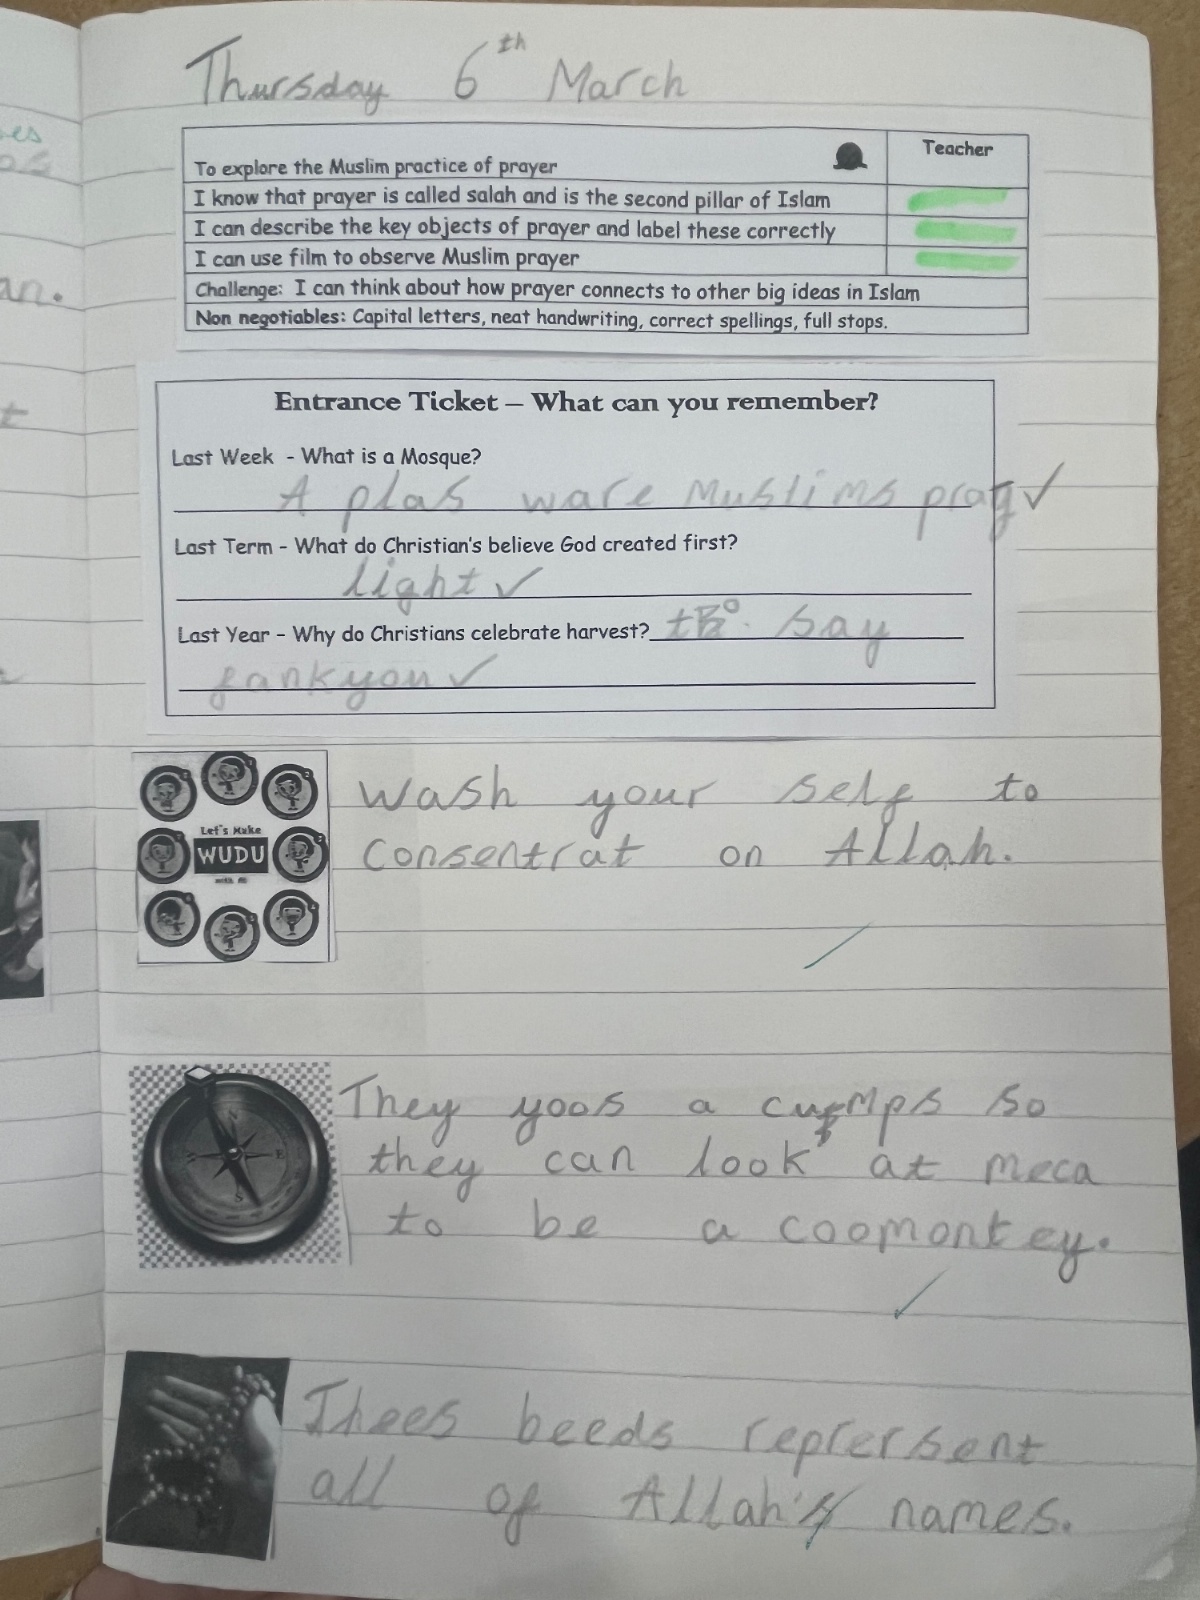 Thursday 6th March
Teacher
To explore the Muslim practice of prayer
I know that prayer is called salah and is the second pillar of Islam
I can describe the key objects of prayer and label these correctly
I can use film to observe Muslim prayer
Challenge: I can think about how prayer connects to other big ideas in Islam
Non negotiables: Capital letters, neat handwriting, correct spellings, full stops.
Entrance Ticket – What can you remember?
Last Week - What is a Mosque?
A plas ware Muslims pray
Last Term - What do Christian's believe God created first?
light
Last Year – Why do Christians celebrate harvest? say
fankyou
Let's Make
WUDU
Wash your self to
Consentrat on Allah.
N
E
S
They yoos a so
they can look at Meca
to be a coomontey.
Thees beeds reprersent
all of Allah's names.
es
an.
t